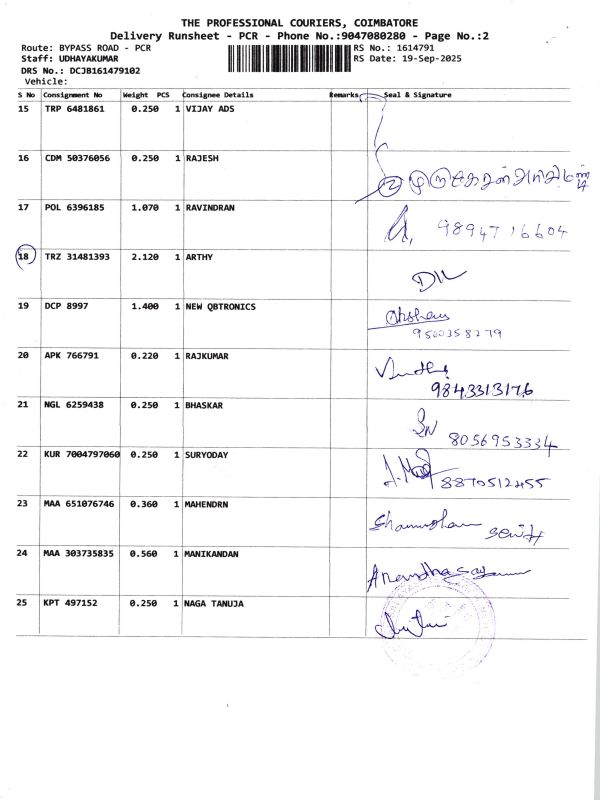 THE PROFESSIONAL COURIERS, COIMBATORE
Delivery Runsheet - PCR - Phone No.:9047080280 - Page No.:2
Route: BYPASS ROAD - PCR RS No.: 1614791
Staff: UDHAYAKUMAR RS Date: 19-Sep-2025
DRS No.: DCJB161479102
Vehicle:
S No Consignment No Weight PCS Consignee Details Remarks Seal & Signature
15 TRP 6481861 0.250 1 VIJAY ADS
16 CDM 50376056 0.250 1 RAJESH
2
17 POL 6396185 1.070 1 RAVINDRAN
9894716604
18 TRZ 31481393 2.120 1 ARTHY
19 DCP 8997 1.400 1 NEW QBTRONICS
9500358279
20 APK 766791 0.220 1 RAJKUMAR
9843313176
21 NGL 6259438 0.250 1 BHASKAR
8056953334
22 KUR 7004797060 0.250 1 SURYODAY
8870512455
23 MAA 651076746 0.360 1 MAHENDRN
24 MAA 303735835 0.560 1 MANIKANDAN
25 KPT 497152 0.250 1 NAGA TANUJA